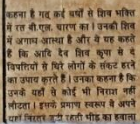 कहना है गत् कई वर्षों से शिव भक्ति
में रत वी.एल. चारण का। उनकी शिव
में अगाध आस्था है और ये यह कहते
हैं कि आदि देव शिव कृपा से वे
विपत्तियों से घिरे लोगों के संकट हरने
का उपाय करते हैं। उनका कहना है कि
उनके यहाँ से कोई भी निराश नहीं
लौटता। इसके प्रमाण स्वरूप वे अपने
यहां निरंतर बढ़ी रहती भीड़ का हवाला